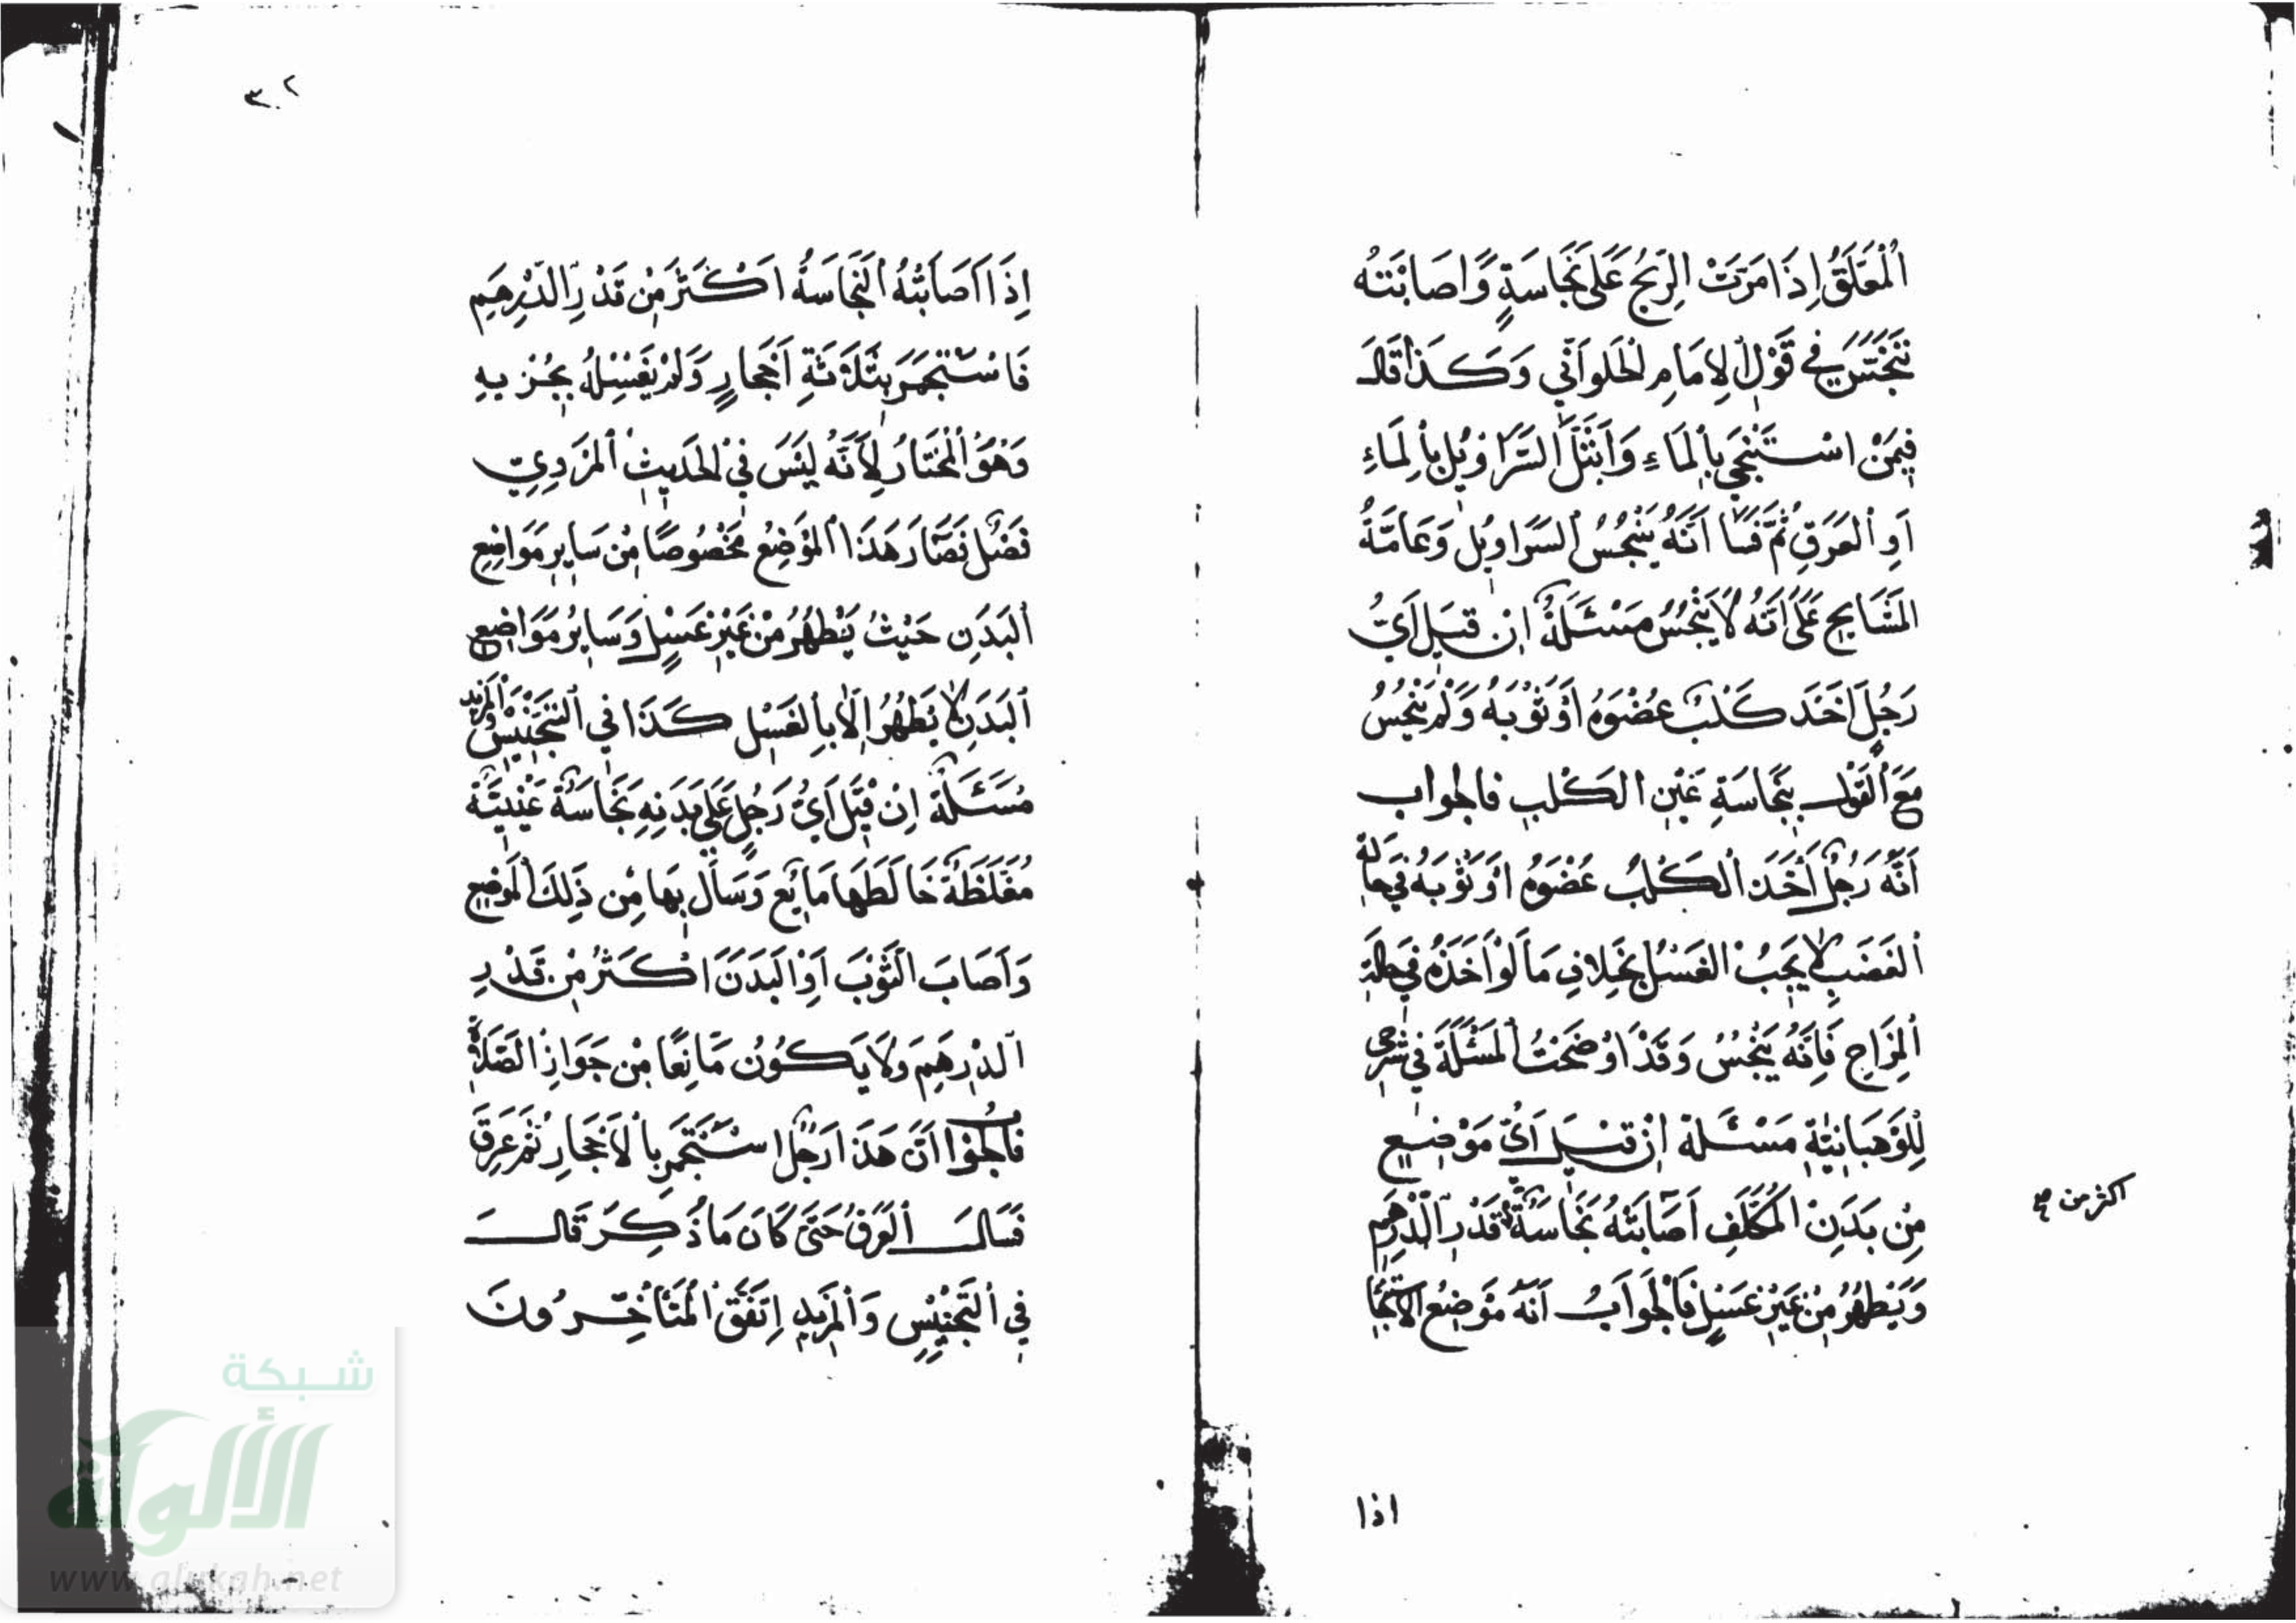 اَلْمُعَلَّقُ اِذَا مَرَّتْ الرِّيحُ عَلَى نَجَاسَةٍ وَاَصَابَتْهُ
تَنَجَّسَ فِي قَوْلِ الاِمَامِ الحَلوَانّي وَكَذَا قَالَ
فِيمَنْ اسْتَنْجَى بِالمَاءِ وَابْتَلَّ السَّرَاوِيلُ بِالمَاءِ
اَوِ العَرَقِ ثُمَّ فَسَا اَنَّهُ يَنْجُسُ السَّرَاوِيلُ وَعَامَّةُ
المَشَايِخِ عَلَى اَنَّهُ لَا يَنْجُسُ مَسْئَلَةٌ اِنْ قِيلَ اَيُّ
رَجُلٍ اَخَذَ كَلْبٌ عُضْوَهُ اَوْ ثَوْبَهُ وَلَمْ يَنْجُسْ
مَعَ القَوْلِ بِنَجَاسَةِ عَيْنِ الكَلْبِ فَالجواب
اَنَّهُ رَجُلٌ اَخَذَ الكَلْبُ عُضْوَهُ اَوْ ثَوْبَهُ فِي حَالَةِ
الغَضَبِ لَا يَجِبُ الغَسْلُ بِخِلَافِ مَا لَوْ اَخَذَهُ فِي حَالَةِ
المِزَاحِ فَاِنَّهُ يَنْجُسُ وَقَدْ اَوْضَحْتُ المَسْئَلَةَ فِي شَرْحِي
لِلْوَهبَانِيَّةِ مَسْئَلَةٌ اِنْ قِيلَ اَيُّ مَوْضِعٍ
مِنْ بَدَنِ المُكَلَّفِ اَصَابَتْهُ نَجَاسَةٌ قَدْرَ الدِّرْهَمِ
اكثر من صح
وَيَطْهُرُ مِنْ غَيْرِ غَسْلٍ فَالجَوَابُ اَنَّهُ مَوْضِعُ الاسْتِنْجَا
اذا
٣٠٢
اِذَا اَصَابَتْهُ النَّجَاسَةُ اَكْثَرَ مِنْ قَدْرِ الدِّرْهَمِ
فَاسْتَجْمَرَ بِثَلَاثَةِ اَحْجَارٍ وَلَمْ يَغْسِلْهُ يَجْزِيهِ
وَهُوَ المُخْتَارُ لِاَنَّهُ لَيْسَ فِي الحَدِيثِ المَرْوِيِّ
فَصْلٌ فَصَارَ هَذَا المَوْضِعُ مَخْصُوصًا مِنْ سَايِرِ مَوَاضِعِ
البَدَنِ حَيْثُ يَطْهُرُ مِنْ غَيْرِ غَسْلٍ وَسَايِرُ مَوَاضِعِ
البَدَنِ لَا يَطْهُرُ اِلَّا بِالغَسْلِ كَذَا فِي التَّجْنِيسِ وَالمَزِيدِ
مَسْئَلَةٌ اِنْ قِيلَ اَيُّ رَجُلٍ عَلَى بَدَنِهِ نَجَاسَةٌ عَيْنِيَّةٌ
مُغَلَّظَةٌ خَالَطَهَا مَايِعٌ وَسَالَ بِهَا مِنْ ذَلِكَ المَوْضِعِ
وَاَصَابَ الثَّوْبَ اَوْ البَدَنَ اَكْثَرُ مِنْ قَدْرِ
الدِّرْهَمِ وَلَا يَكُونُ مَانِعًا مِنْ جَوَازِ الصَّلَاةِ
فَالجَوَابُ اَنَّ هَذَا رَجُلٌ اسْتَجْمَرَ بِالاَحْجَارِ ثُمَّ عَرِقَ
فَسَالَ العَرَقُ حَتَّى كَانَ مَا ذُكِرَ قَالَ
فِي التَّجْنِيسِ وَالمَزِيدِ اِتَّفَقَ المُتَأَخِّرُونَ
شبكة
الألوكة
www.alukah.net